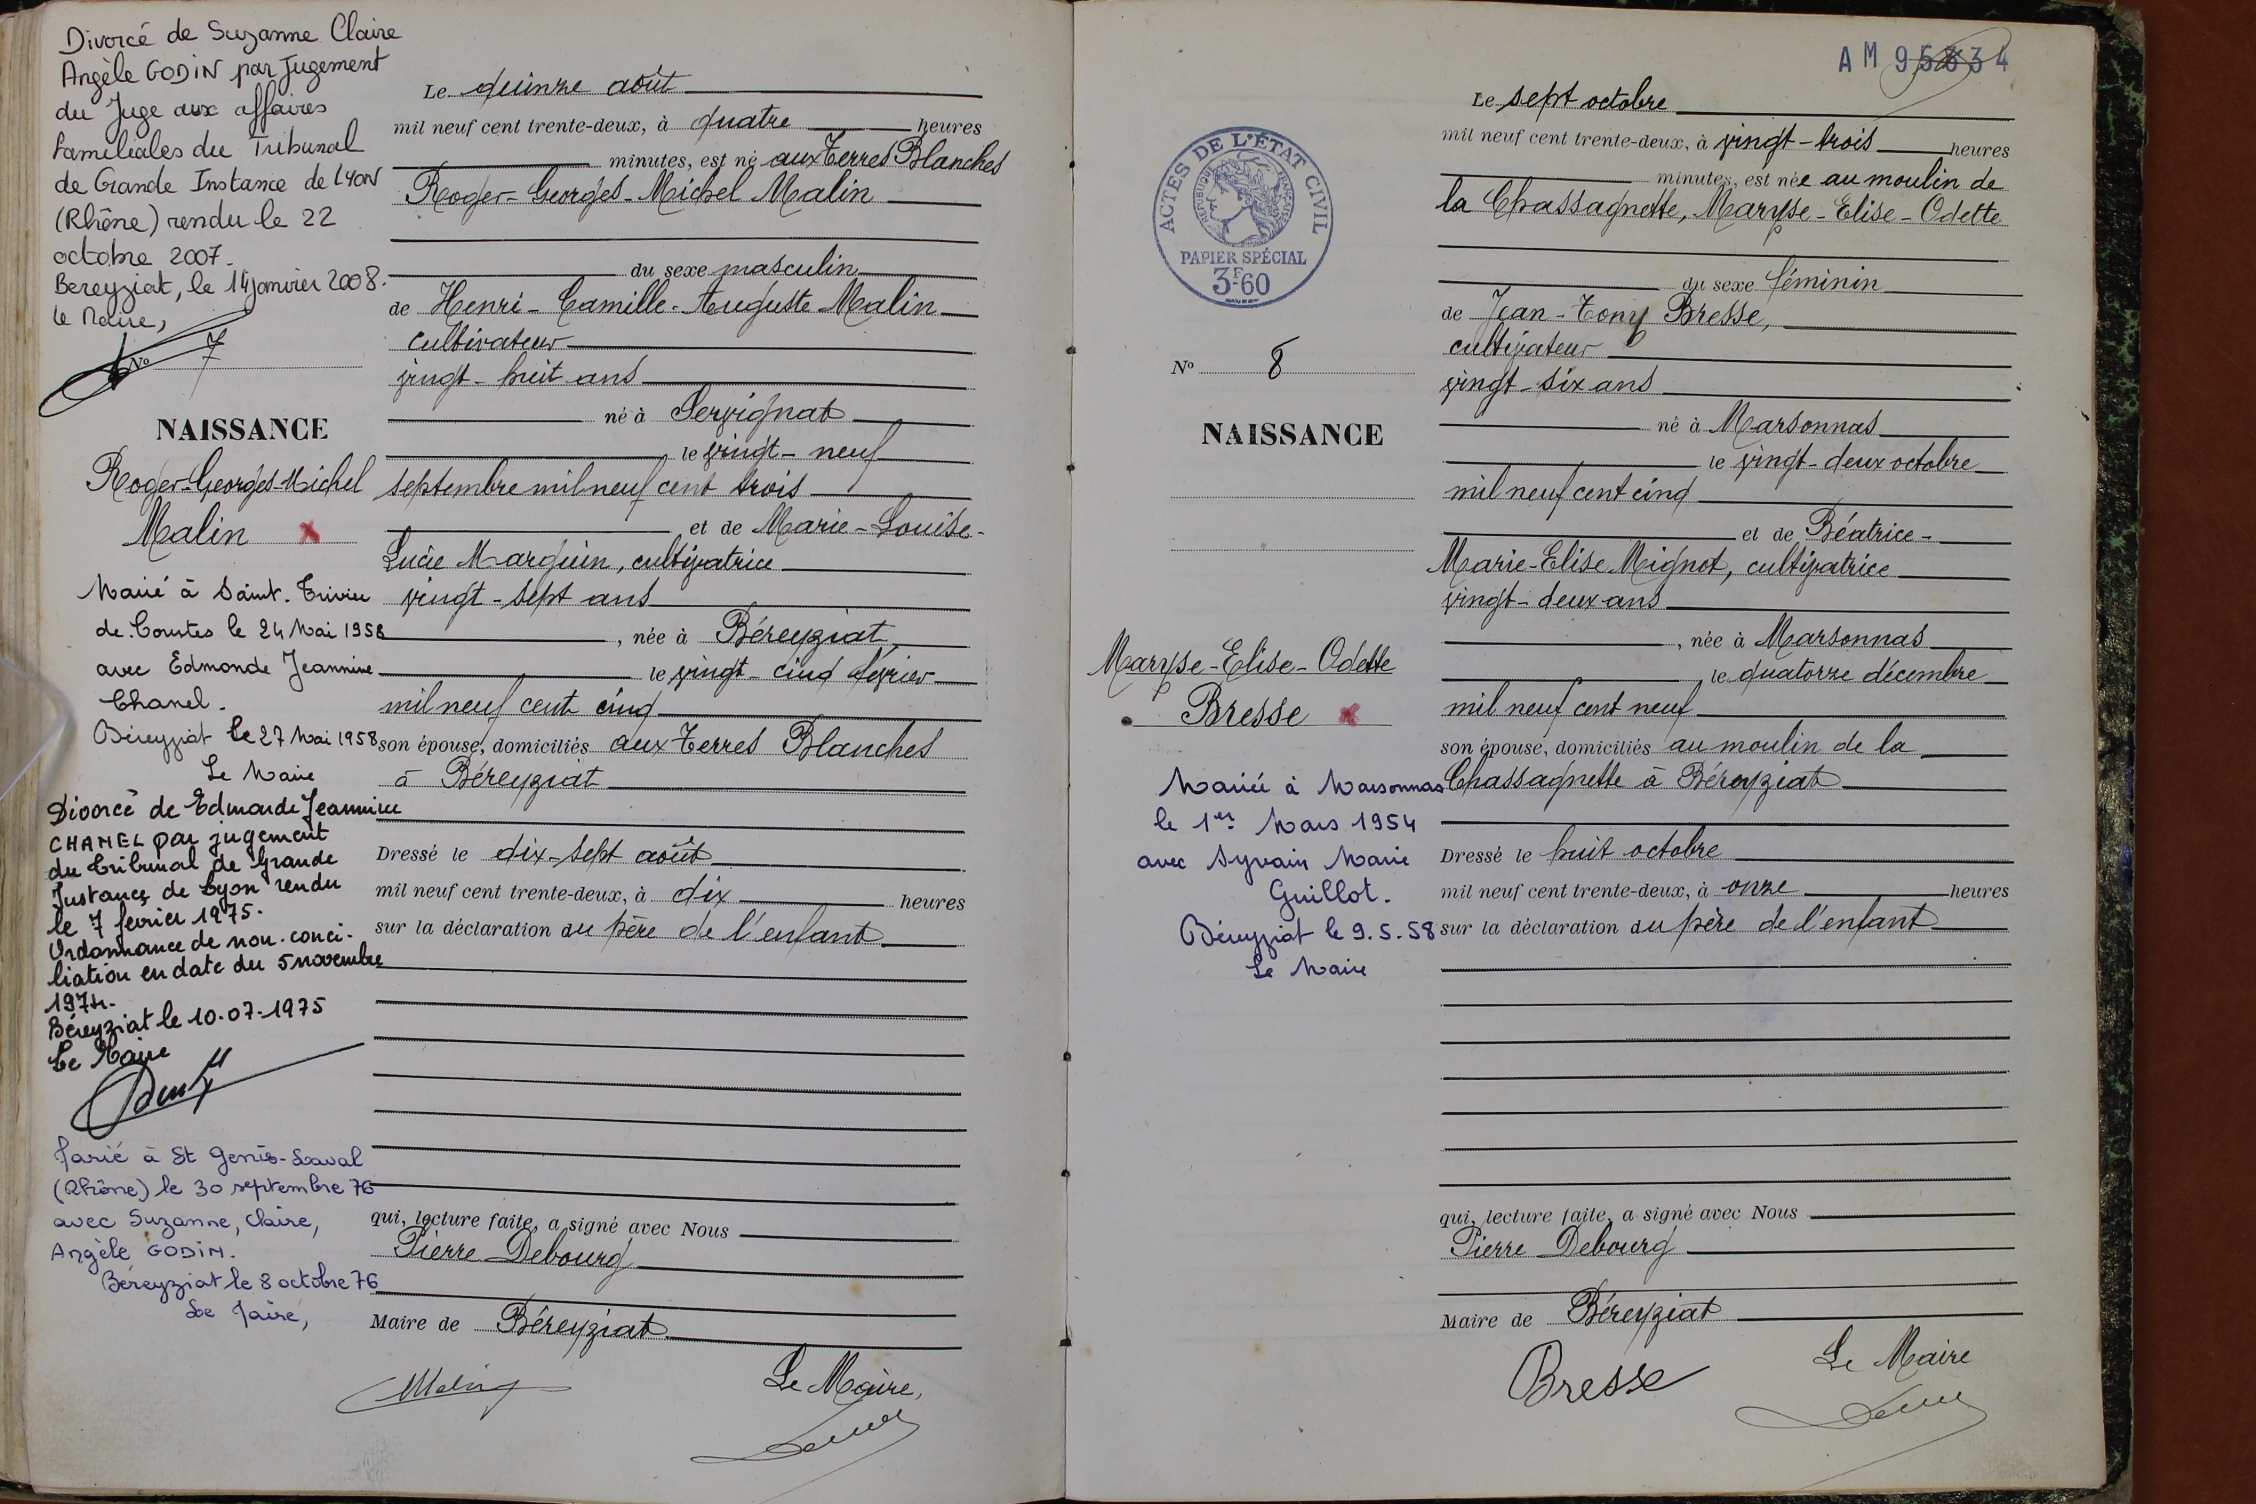 Divorcé de Suzanne Claire
Angèle GODIN par Jugement
du Juge aux affaires
familiales du Tribunal
de Grande Instance de LYON
(Rhône) rendu le 22
octobre 2007.
Bereyziat, le 14 janvier 2008.
le Maire,
No 7
NAISSANCE
Roger-Georges-Michel
Malin
Marié à Saint-Trivier
de Courtes le 24 Mai 1958
avec Edmonde Jeannine
Chanel.
Béreyziat le 27 Mai 1958
Le Maire
Divorcé de Edmonde Jeannine
CHANEL par jugement
du tribunal de Grande
Instance de Lyon rendu
le 7 février 1975.
Ordonnance de non-conci-
liation en date du 5 novembre
1974.
Béreyziat le 10-07-1975
Le Maire
Marié à St Genis-Laval
(Rhône) le 30 septembre 76
avec Suzanne, Claire,
Angèle GODIN.
Béreyziat le 8 octobre 76
Le Maire,
Le quinze août
mil neuf cent trente-deux, à quatre heures
minutes, est né aux Terres Blanches
Roger-Georges-Michel Malin
du sexe masculin
de Henri-Camille-Auguste Malin
cultivateur
vingt-huit ans
né à Servignat
le vingt-neuf
septembre mil neuf cent trois
et de Marie-Louise-
Lucie Marguin, cultivatrice
vingt-sept ans
, née à Béreyziat
le vingt-cinq février
mil neuf cent cinq
son épouse, domiciliés aux Terres Blanches
à Béreyziat
Dressé le dix-sept août
mil neuf cent trente-deux, à dix heures
sur la déclaration du père de l'enfant
qui, lecture faite, a signé avec Nous
Pierre Debourg
Maire de Béreyziat
Malin
Le Maire,
AM 95834
ACTES DE L'ÉTAT CIVIL
RÉPUBLIQUE FRANÇAISE
PAPIER SPÉCIAL
3F60
No 8
NAISSANCE
Maryse-Elise-Odette
Bresse
Mariée à Marsonnas
le 1er Mars 1954
avec Sylvain Marie
Guillot.
Béreyziat le 9.5.58
Le Maire
Le sept octobre
mil neuf cent trente-deux, à vingt-trois heures
minutes, est née au moulin de
la Chassagnette, Maryse-Elise-Odette
du sexe féminin
de Jean-Tony Bresse,
cultivateur
vingt-six ans
né à Marsonnas
le vingt-deux octobre
mil neuf cent cinq
et de Béatrice-
Marie-Elise Mignot, cultivatrice
vingt-deux ans
, née à Marsonnas
le quatorze décembre
mil neuf cent neuf
son épouse, domiciliés au moulin de la
Chassagnette à Béreyziat
Dressé le huit octobre
mil neuf cent trente-deux, à onze heures
sur la déclaration du père de l'enfant
qui, lecture faite, a signé avec Nous
Pierre Debourg
Maire de Béreyziat
Bresse
Le Maire